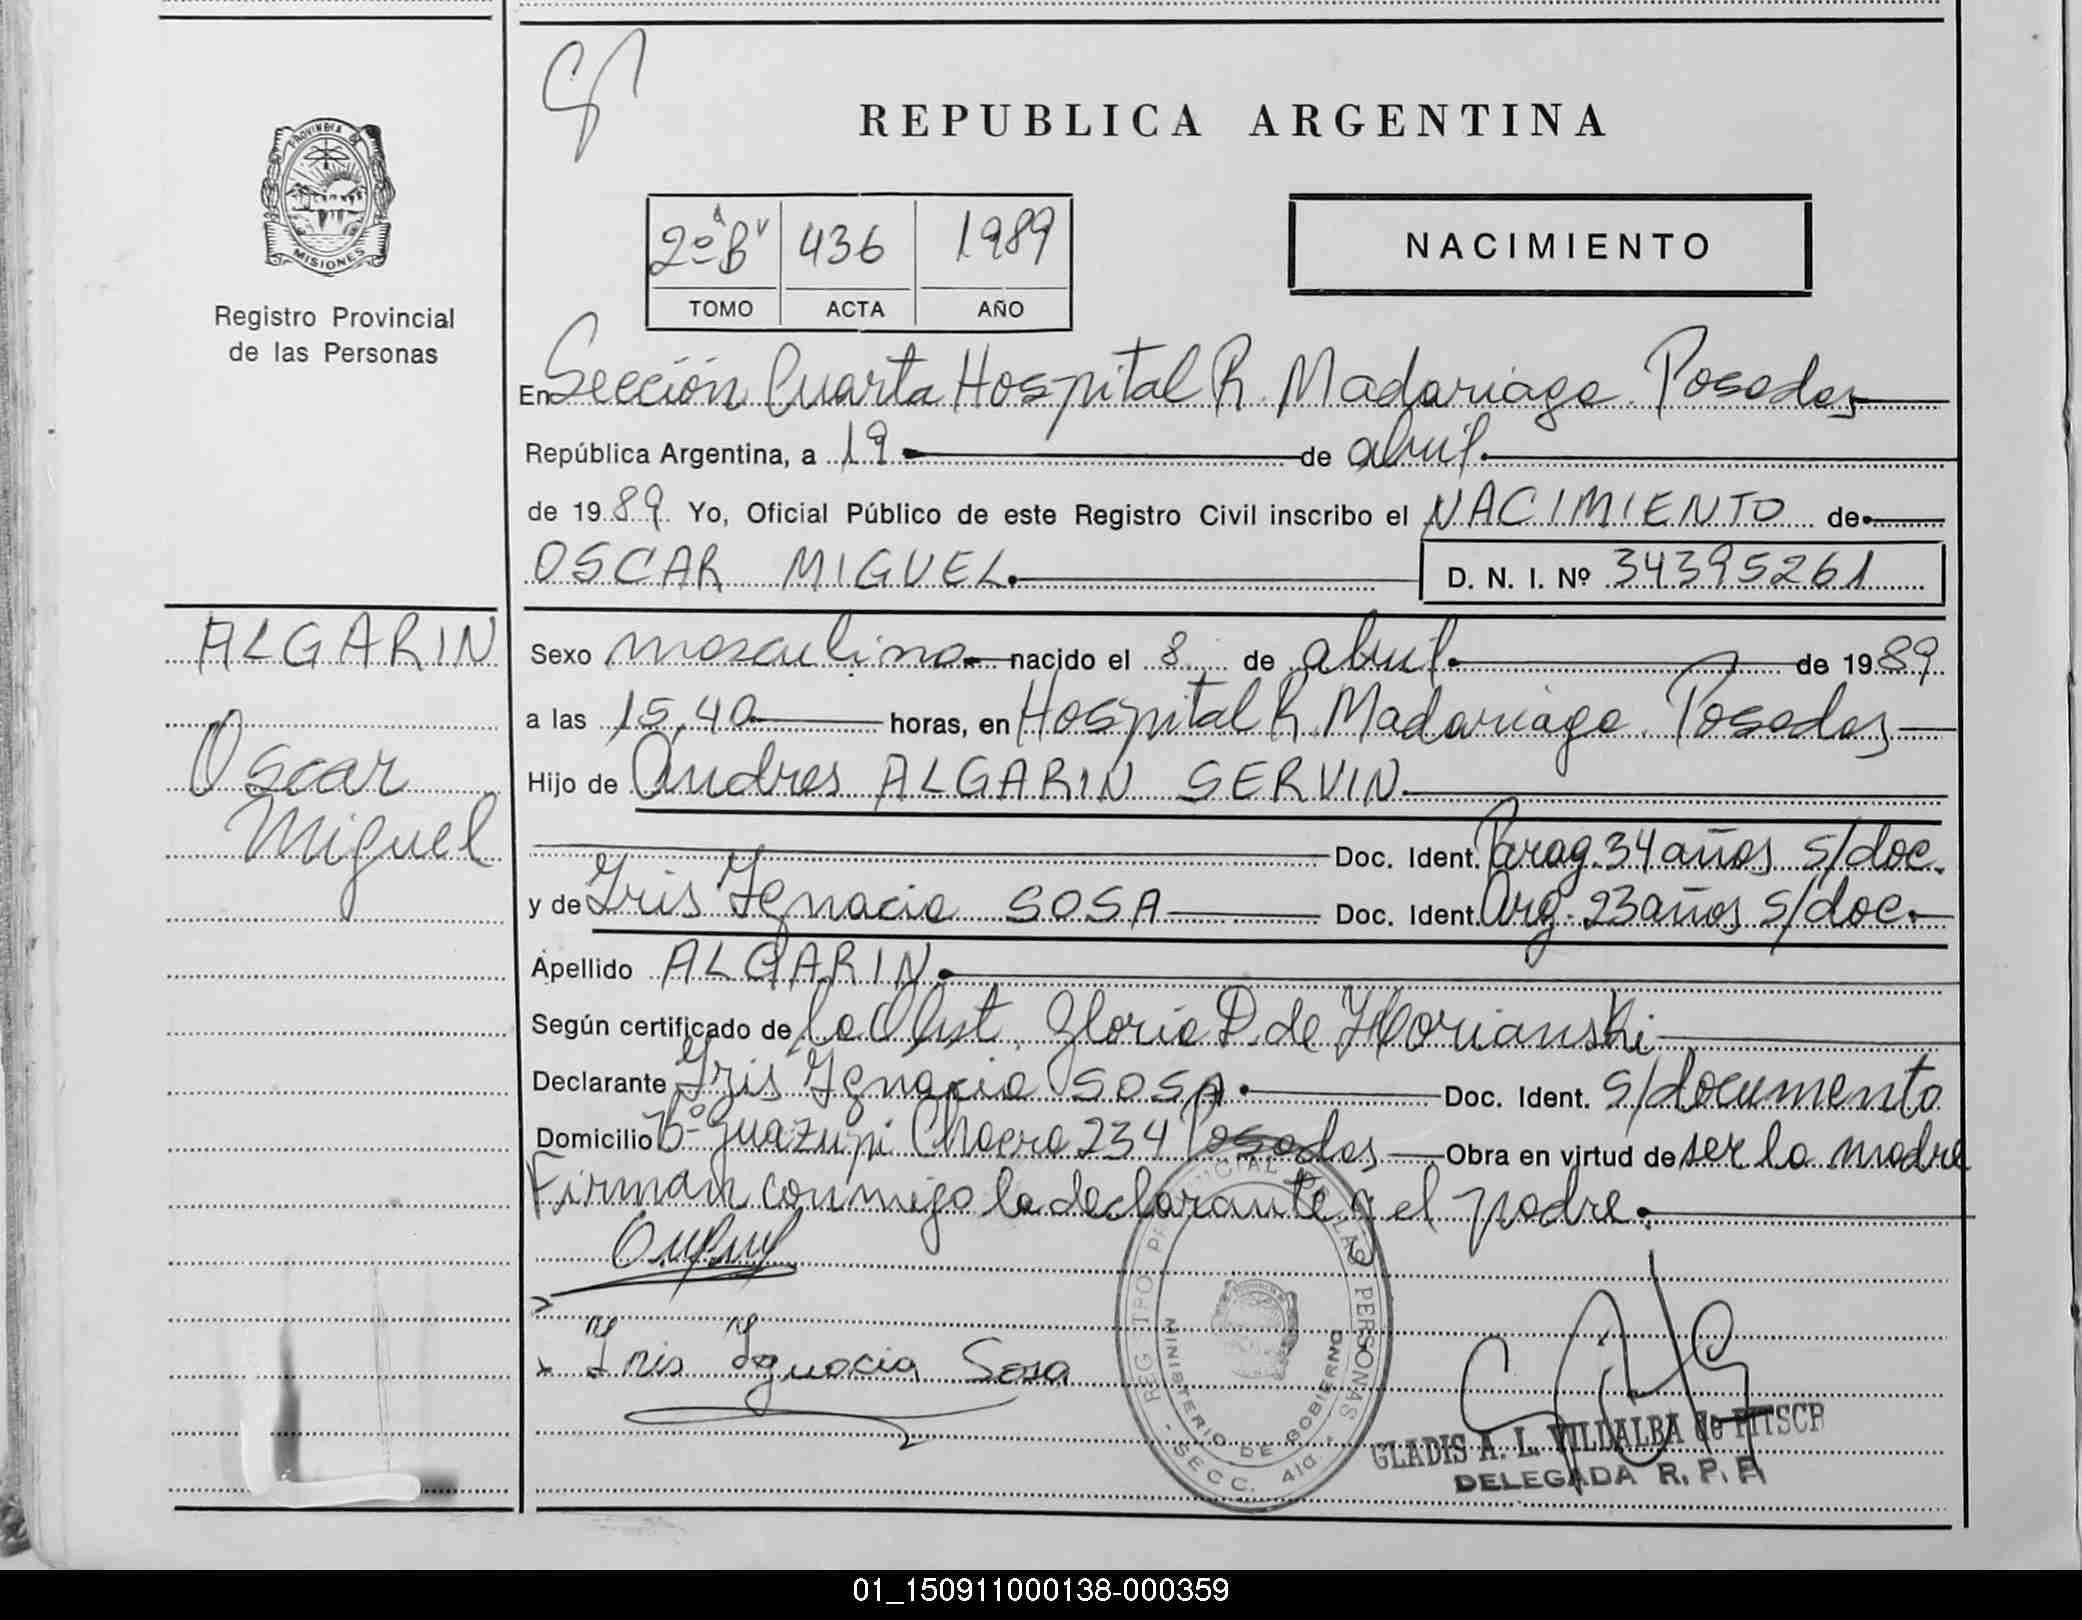 REPUBLICA ARGENTINA
PROVINCIA DE
MISIONES
Registro Provincial
de las Personas
2º "B" 436 1989
TOMO ACTA AÑO
NACIMIENTO
En Sección Cuarta Hospital R. Madariaga. Posadas
República Argentina, a 19 de abril
de 1989 Yo, Oficial Público de este Registro Civil inscribo el NACIMIENTO de
OSCAR MIGUEL D. N. I. Nº 34395261
ALGARIN
Oscar
Miguel
Sexo masculino nacido el 8 de abril de 1989
a las 15,40 horas, en Hospital R. Madariaga. Posadas
Hijo de Andres ALGARIN SERVIN
Doc. Ident. Parag. 34 años s/doc.
y de Iris Ignacia SOSA Doc. Ident. Arg. 23 años s/doc.
Apellido ALGARIN
Según certificado de la Obst. Gloria D. de
Declarante Iris Ignacia SOSA Doc. Ident. s/documento
Domicilio Bº Guazupi Chacra 234 Posadas Obra en virtud de ser la madre
Firman conmigo la declarante y el padre.
Iris Ignacia Sosa
REGISTRO PROVINCIAL DE LAS PERSONAS
MINISTERIO DE GOBIERNO
- SECC. 4ta. -
GLADIS A. L. VILLALBA de PITSCH
DELEGADA R. P. P.
01_150911000138-000359